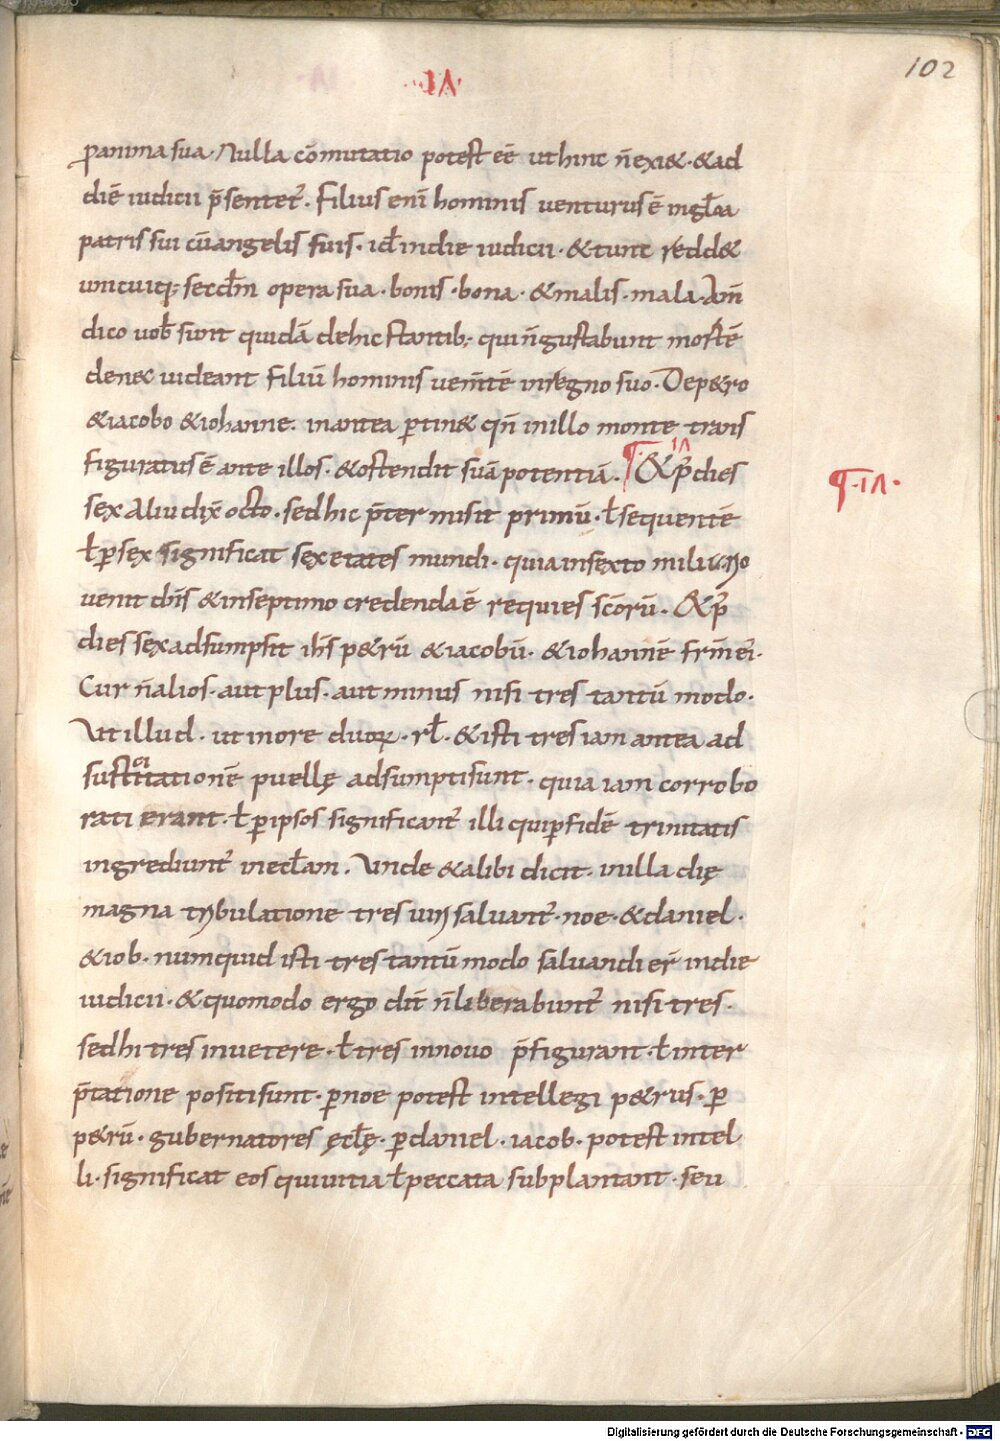 102
p̄anima sua. Nulla cōmutatio potest eē ut hinc n̄ exi&. & ad
diē iudicii p̄sentet᷑. Filius enī hominis uenturus ē in gl̄oa
patris sui cū angelis suis. id̄ in die iudicii. & tunc redd&
unicuiq; secd̄m opera sua. bonis. bona. & malis. mala. Am̄
dico uob̄ sunt quidā de hic stantib; qui n̄ gustabunt mortē
denec uideant filiū hominis uenītē in regno suo. De p&ro
& iacobo & iohanne. in antea ptin& qn̄ in illo monte trans
figuratus ē ante illos. & ostendit suā potentiā. ¶ & p̄ dies
¶.
sex Aliu dix̄ octo. sed hic p̄termisit primū. ł sequentē
ł p sex significat sex etates mundi. quia in sexto miliario
uenit dn̄s & in septimo credenda ē requies sc̄orū. & p̄
dies sex adsumpsit ih̄s p&rū & iacobū. & iohannē fr̄m ei᷑.
Cur n̄ alios. aut plus. aut minus nisi tres tantū modo.
Ut illud. ut in ore duoꝝ. rł. & isti tres iam antea ad
puellę adsumpti sunt. quia iam corrobo
rati erant. ł p ipsos significant᷑ illi qui p fidē trinitatis
ingrediunt᷑ in eccl̄am. Unde & alibi dicit. in illa dię
magna tribulatione tres uiri saluant᷑. noe. & daniel.
& iob. numquid isti tres tantū modo saluandi er̄ in die
iudicii. & quomodo ergo dn̄t n̄ liberabunt᷑ nisi tres.
sed hi tres in uetere. ł tres in nouo p̄figurant. ł inter
p̄tatione positi sunt. p noe potest intellegi p&rus. p
p&rū. gubernatores ęcl̄ę. p daniel. iacob. potest intel
li. significat eos qui uitia ł peccata subplantant. seu
Digitalisierung gefördert durch die Deutsche Forschungsgemeinschaft - DFG